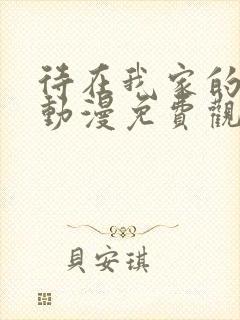 待在我家的
動漫免費觀
貝安琪